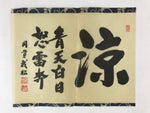 涼
青天白日
怒雷奔